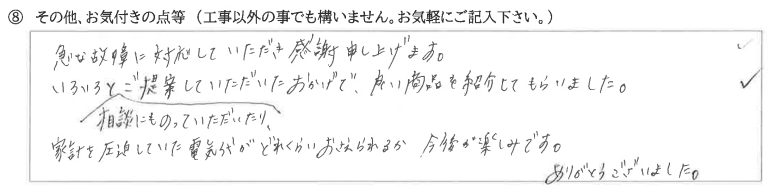 ⑧ その他、お気付きの点等（工事以外の事でも構いません。お気軽にご記入下さい。）
急な故障に対応していただき感謝申し上げます。
いろいろとご提案していただいたおかげで、良い商品を紹介してもらいました。
相談にものっていただいたり、
家計を圧迫していた電気代がどれくらいおさえられるか 今後が楽しみです。
ありがとうございました。